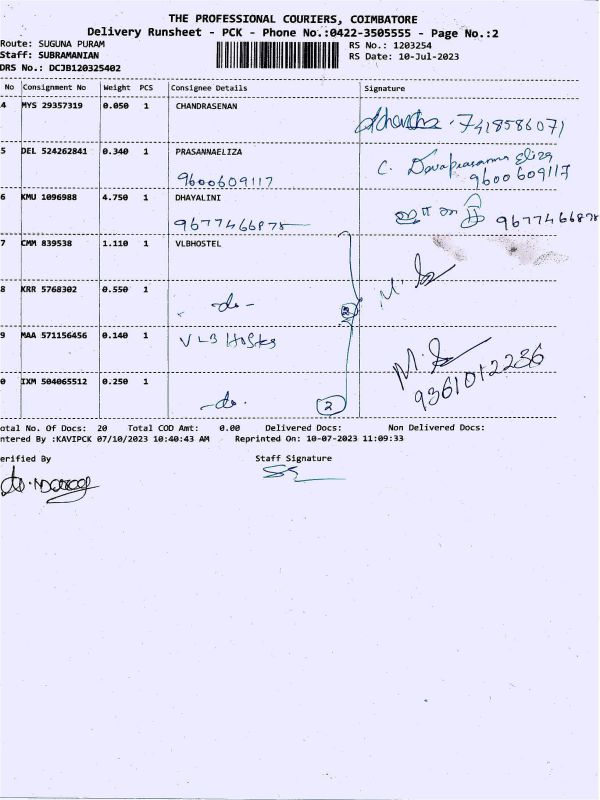 THE PROFESSIONAL COURIERS, COIMBATORE
Delivery Runsheet - PCK - Phone No.:0422-3505555 - Page No.:2
Route: SUGUNA PURAM RS No.: 1203254
Staff: SUBRAMANIAN RS Date: 10-Jul-2023
DRS No.: DCJB120325402
No Consignment No Weight PCS Consignee Details Signature
4 MYS 29357319 0.050 1 CHANDRASENAN
7418586071
5 DEL 524262841 0.340 1 PRASANNAELIZA
9600609117 C. Eliza 9600609117
6 KMU 1096988 4.750 1 DHAYALINI
9677466878 9677466878
7 CMM 839538 1.110 1 VLBHOSTEL
8 KRR 5768302 0.550 1
-do-
9 MAA 571156456 0.140 1 VLB Hostel
0 IXM 504065512 0.250 1
-do. 2 9361012236
otal No. Of Docs: 20 Total COD Amt: 0.00 Delivered Docs: Non Delivered Docs:
ntered By :KAVIPCK 07/10/2023 10:40:43 AM Reprinted On: 10-07-2023 11:09:33
erified By Staff Signature